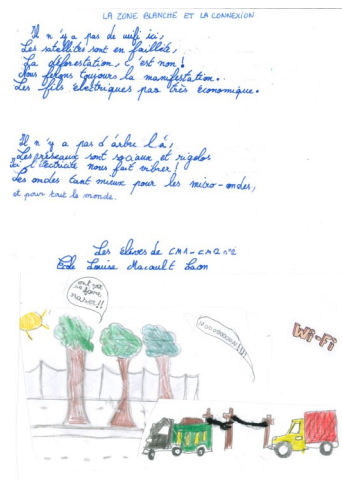 LA ZONE BLANCHE ET LA CONNEXION
Il n'y a pas de wifi ici,
Les satellites sont en faillite,
La déforestation, c'est non !
Nous ferons toujours la manifestation.
Les fils électriques pas très économique.
Il n'y a pas d'arbre là,
Les préseaux sont sociaux et rigolos
Ici l'électricité nous fait vibrer !
Les ondes tant mieux pour les micro-ondes,
et pour tout le monde.
Les élèves de CM1-CM2 n°2
Ecole Louise Macault Laon
on va
se faire
raser !!
Wi-Fi